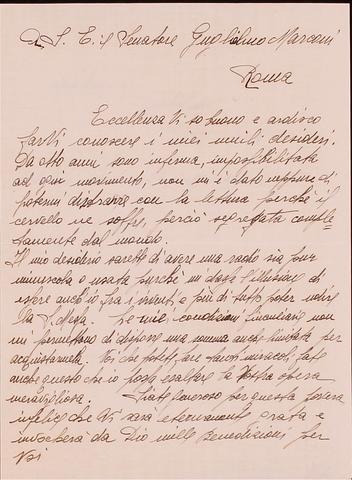 A S. E. il Senatore Guglielmo Marconi
Roma
Eccellenza Vi so buono e ardisco
farVi conoscere i miei umili desideri.
Da otto anni sono inferma, impossibilitata
ad ogni movimento, non mi è dato neppure di
potermi distrarre con la lettura perchè il
cervello ne soffre, perciò segregata comple-
tamente dal mondo.
Il mio desiderio sarebbe di avere una radio sia pur
minuscola o usata purchè mi dasse l'illusione di
essere anch'io fra i viventi, e più di tutto poter udire
la S. Messa. Le mie condizioni finanziarie non
mi permettono di disporre una somma anche limitata per
acquistarmela. Voi che potete fare tanti miracoli, fate
anche questo che io possa esaltare la Vostra opera
meravigliosa. Siate generoso per questa povera
infelice che Vi sarà eternamente grata e
invocherà da Dio mille benedizioni per
Voi